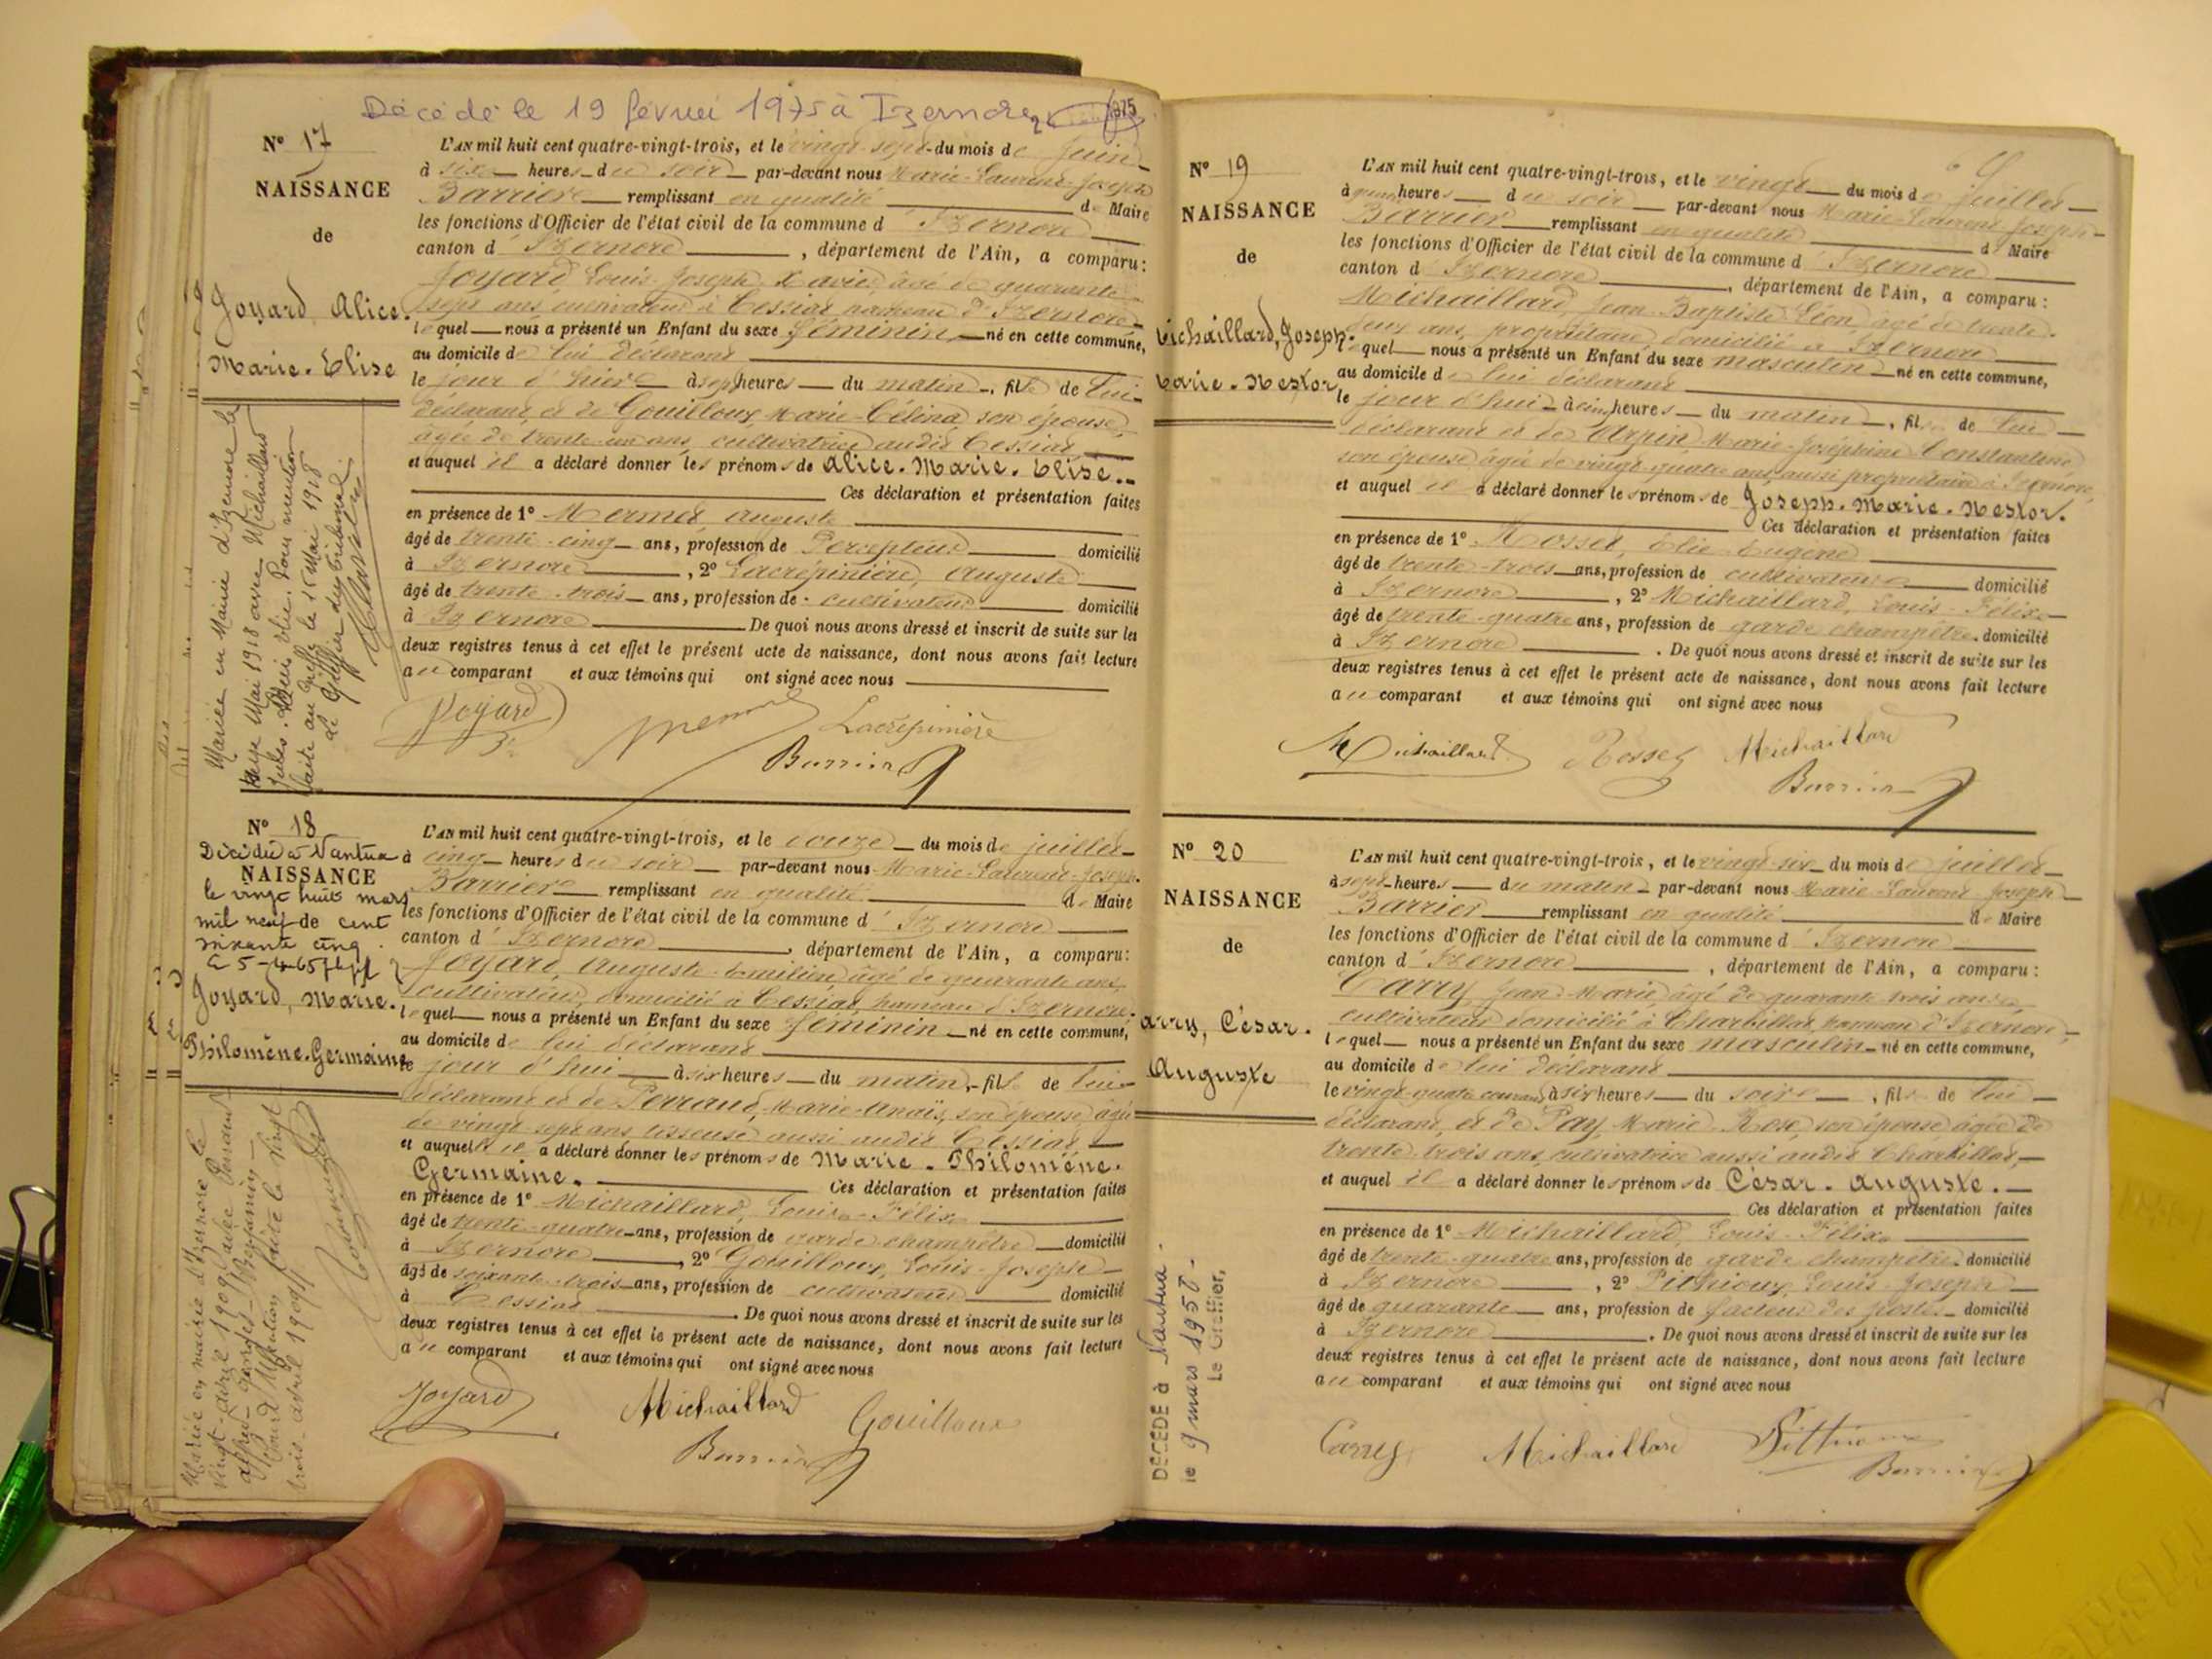 Décédé le 19 février 1975 à Izernore
N° 17
NAISSANCE
de
Joyard Alice.
Marie. Elise
L'AN mil huit cent quatre-vingt-trois, et le vingt-sept du mois de juin
à six heures du soir par-devant nous Marie-Laurent-Joseph
Barrier remplissant en qualité de Maire
les fonctions d'Officier de l'état civil de la commune d'Izernore
canton d'Izernore, département de l'Ain, a comparu:
Joyard Louis Joseph Xavier âgé de quarante
sept ans, cultivateur à Cessiat hameau d'Izernore
lequel nous a présenté un Enfant du sexe féminin né en cette commune,
au domicile de lui déclarant
le jour d'hier à sept heures du matin, fille de lui
déclarant et de Gouilloux, Marie-Célina, son épouse,
âgée de trente-un ans, cultivatrice audit Cessiat
et auquel il a déclaré donner les prénoms de Alice. Marie. Elise..
Ces déclaration et présentation faites
en présence de 1° Mermet Auguste
âgé de trente-cinq ans, profession de Percepteur domicilié
à Izernore, 2° Lacrépinière, Auguste
âgé de trente-trois ans, profession de cultivateur domicilié
à Izernore De quoi nous avons dressé et inscrit de suite sur les
deux registres tenus à cet effet le présent acte de naissance, dont nous avons fait lecture
au comparant et aux témoins qui ont signé avec nous
Joyard Mermet Lacrépinière
Barrier
Mariée en Mairie d'Izernore le
Mai 1918 avec Michaillard
Jules. Elie. Pour mention
faite au greffe le 15 Mai 1918
Le Greffier du tribunal.
N° 18
Décédée à Nantua
NAISSANCE
le vingt huit mars
mil neuf de cent
soixante cinq.
Joyard, Marie.
Philomène. Germaine
L'AN mil huit cent quatre-vingt-trois, et le onze du mois de juillet
à cinq heures du soir par-devant nous Marie-Laurent-Joseph
Barrier remplissant en qualité de Maire
les fonctions d'Officier de l'état civil de la commune d'Izernore
canton d'Izernore, département de l'Ain, a comparu:
Joyard, Auguste Emilien âgé de quarante ans,
cultivateur, domicilié à Cessiat, hameau d'Izernore
lequel nous a présenté un Enfant du sexe féminin né en cette commune,
au domicile de lui déclarant
le jour d'hui à six heures du matin, fille de lui
déclarant et de Perraud, Marie-Anaïs, son épouse, âgée
de vingt sept ans tisseuse aussi audit Cessiat
et auquel il a déclaré donner les prénoms de Marie. Philomène.
Germaine. Ces déclaration et présentation faites
en présence de 1° Michaillard, Louis-Félix
âgé de trente-quatre ans, profession de garde champêtre domicilié
à Izernore, 2° Gouilloux, Louis-Joseph
âgé de soixante-trois ans, profession de cultivateur domicilié
à Cessiat De quoi nous avons dressé et inscrit de suite sur les
deux registres tenus à cet effet le présent acte de naissance, dont nous avons fait lecture
au comparant et aux témoins qui ont signé avec nous
Joyard Michaillard Gouilloux
Barrier
Mariée en mairie d'Izernore le
vingt avril 1909 avec Perraud
Benjamin
Mention faite le vingt
trois avril 1909
N° 19
NAISSANCE
de
Michaillard, Joseph.
Marie. Nestor
L'AN mil huit cent quatre-vingt-trois, et le vingt du mois de juillet
à heures du soir par-devant nous Marie-Laurent Joseph
Barrier remplissant en qualité de Maire
les fonctions d'Officier de l'état civil de la commune d'Izernore
canton d'Izernore, département de l'Ain, a comparu:
Michaillard, Jean-Baptiste Léon, âgé de trente
deux ans, propriétaire, domicilié à Izernore
lequel nous a présenté un Enfant du sexe masculin né en cette commune,
au domicile de lui déclarant
le jour d'hui à cinq heures du matin, fils de lui
déclarant et de Arpin, Marie-Joséphine Constantine
son épouse, âgée de vingt-quatre ans, aussi propriétaire à Izernore,
et auquel il a déclaré donner les prénoms de Joseph. Marie. Nestor.
Ces déclaration et présentation faites
en présence de 1° Rosset, Elie Eugène
âgé de trente-trois ans, profession de cultivateur domicilié
à Izernore, 2° Michaillard, Louis-Félix
âgé de trente-quatre ans, profession de garde champêtre domicilié
à Izernore. De quoi nous avons dressé et inscrit de suite sur les
deux registres tenus à cet effet le présent acte de naissance, dont nous avons fait lecture
au comparant et aux témoins qui ont signé avec nous
Michaillard Rosset Michaillard
Barrier
N° 20
NAISSANCE
de
arry, César.
Auguste
L'AN mil huit cent quatre-vingt-trois, et le vingt-six du mois de juillet
à sept heures du matin par-devant nous Marie-Laurent Joseph
Barrier remplissant en qualité de Maire
les fonctions d'Officier de l'état civil de la commune d'Izernore
canton d'Izernore, département de l'Ain, a comparu:
Carry Jean-Marie, âgé de quarante trois ans
cultivateur domicilié à Charbillat, hameau d'Izernore,
lequel nous a présenté un Enfant du sexe masculin né en cette commune,
au domicile de lui déclarant
le vingt-quatre courant, à six heures du soir, fils de lui
déclarant, et de Pay, Marie Rose, son épouse, âgée de
trente-trois ans, cultivatrice aussi audit Charbillat,
et auquel il a déclaré donner les prénoms de César. Auguste.
Ces déclaration et présentation faites
en présence de 1° Michaillard, Louis-Félix
âgé de trente-quatre ans, profession de garde champêtre domicilié
à Izernore, 2° Pithioux, Louis-Joseph
âgé de quarante ans, profession de facteur des postes domicilié
à Izernore. De quoi nous avons dressé et inscrit de suite sur les
deux registres tenus à cet effet le présent acte de naissance, dont nous avons fait lecture
au comparant et aux témoins qui ont signé avec nous
Carry Michaillard Pithioux
Barrier
DÉCÉDÉ à Nantua
le 9 mars 1958
Le Greffier,